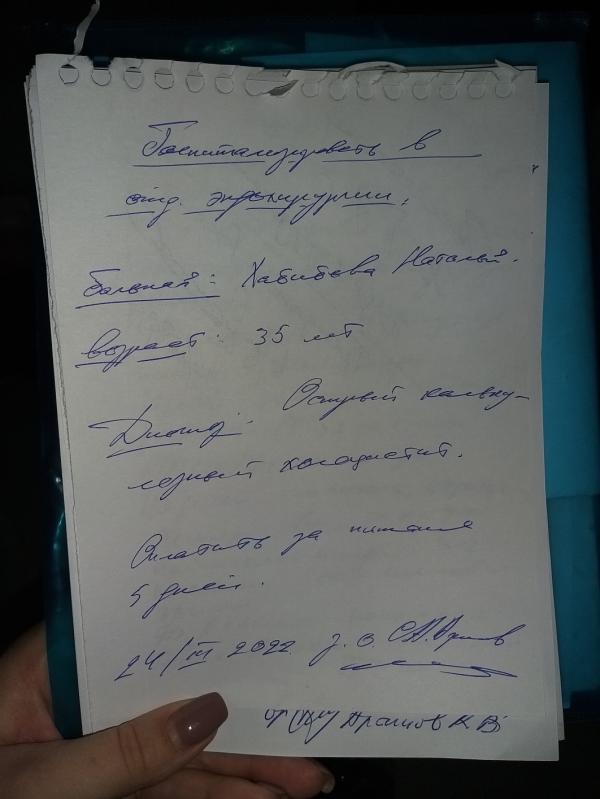 Госпитализировать в
отд. эндохирургии.
больной: Хабибова Наталья.
возраст: 35 лет
Диагноз: Острый кальку-
лезный холецистит.
Оплатить за питание
5 дней.
24/III 2022. з.о.